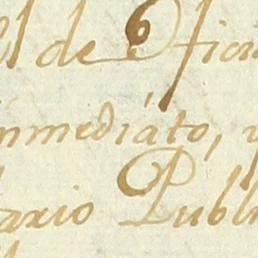 l de Ofici
inmediáto, y
ario Publi